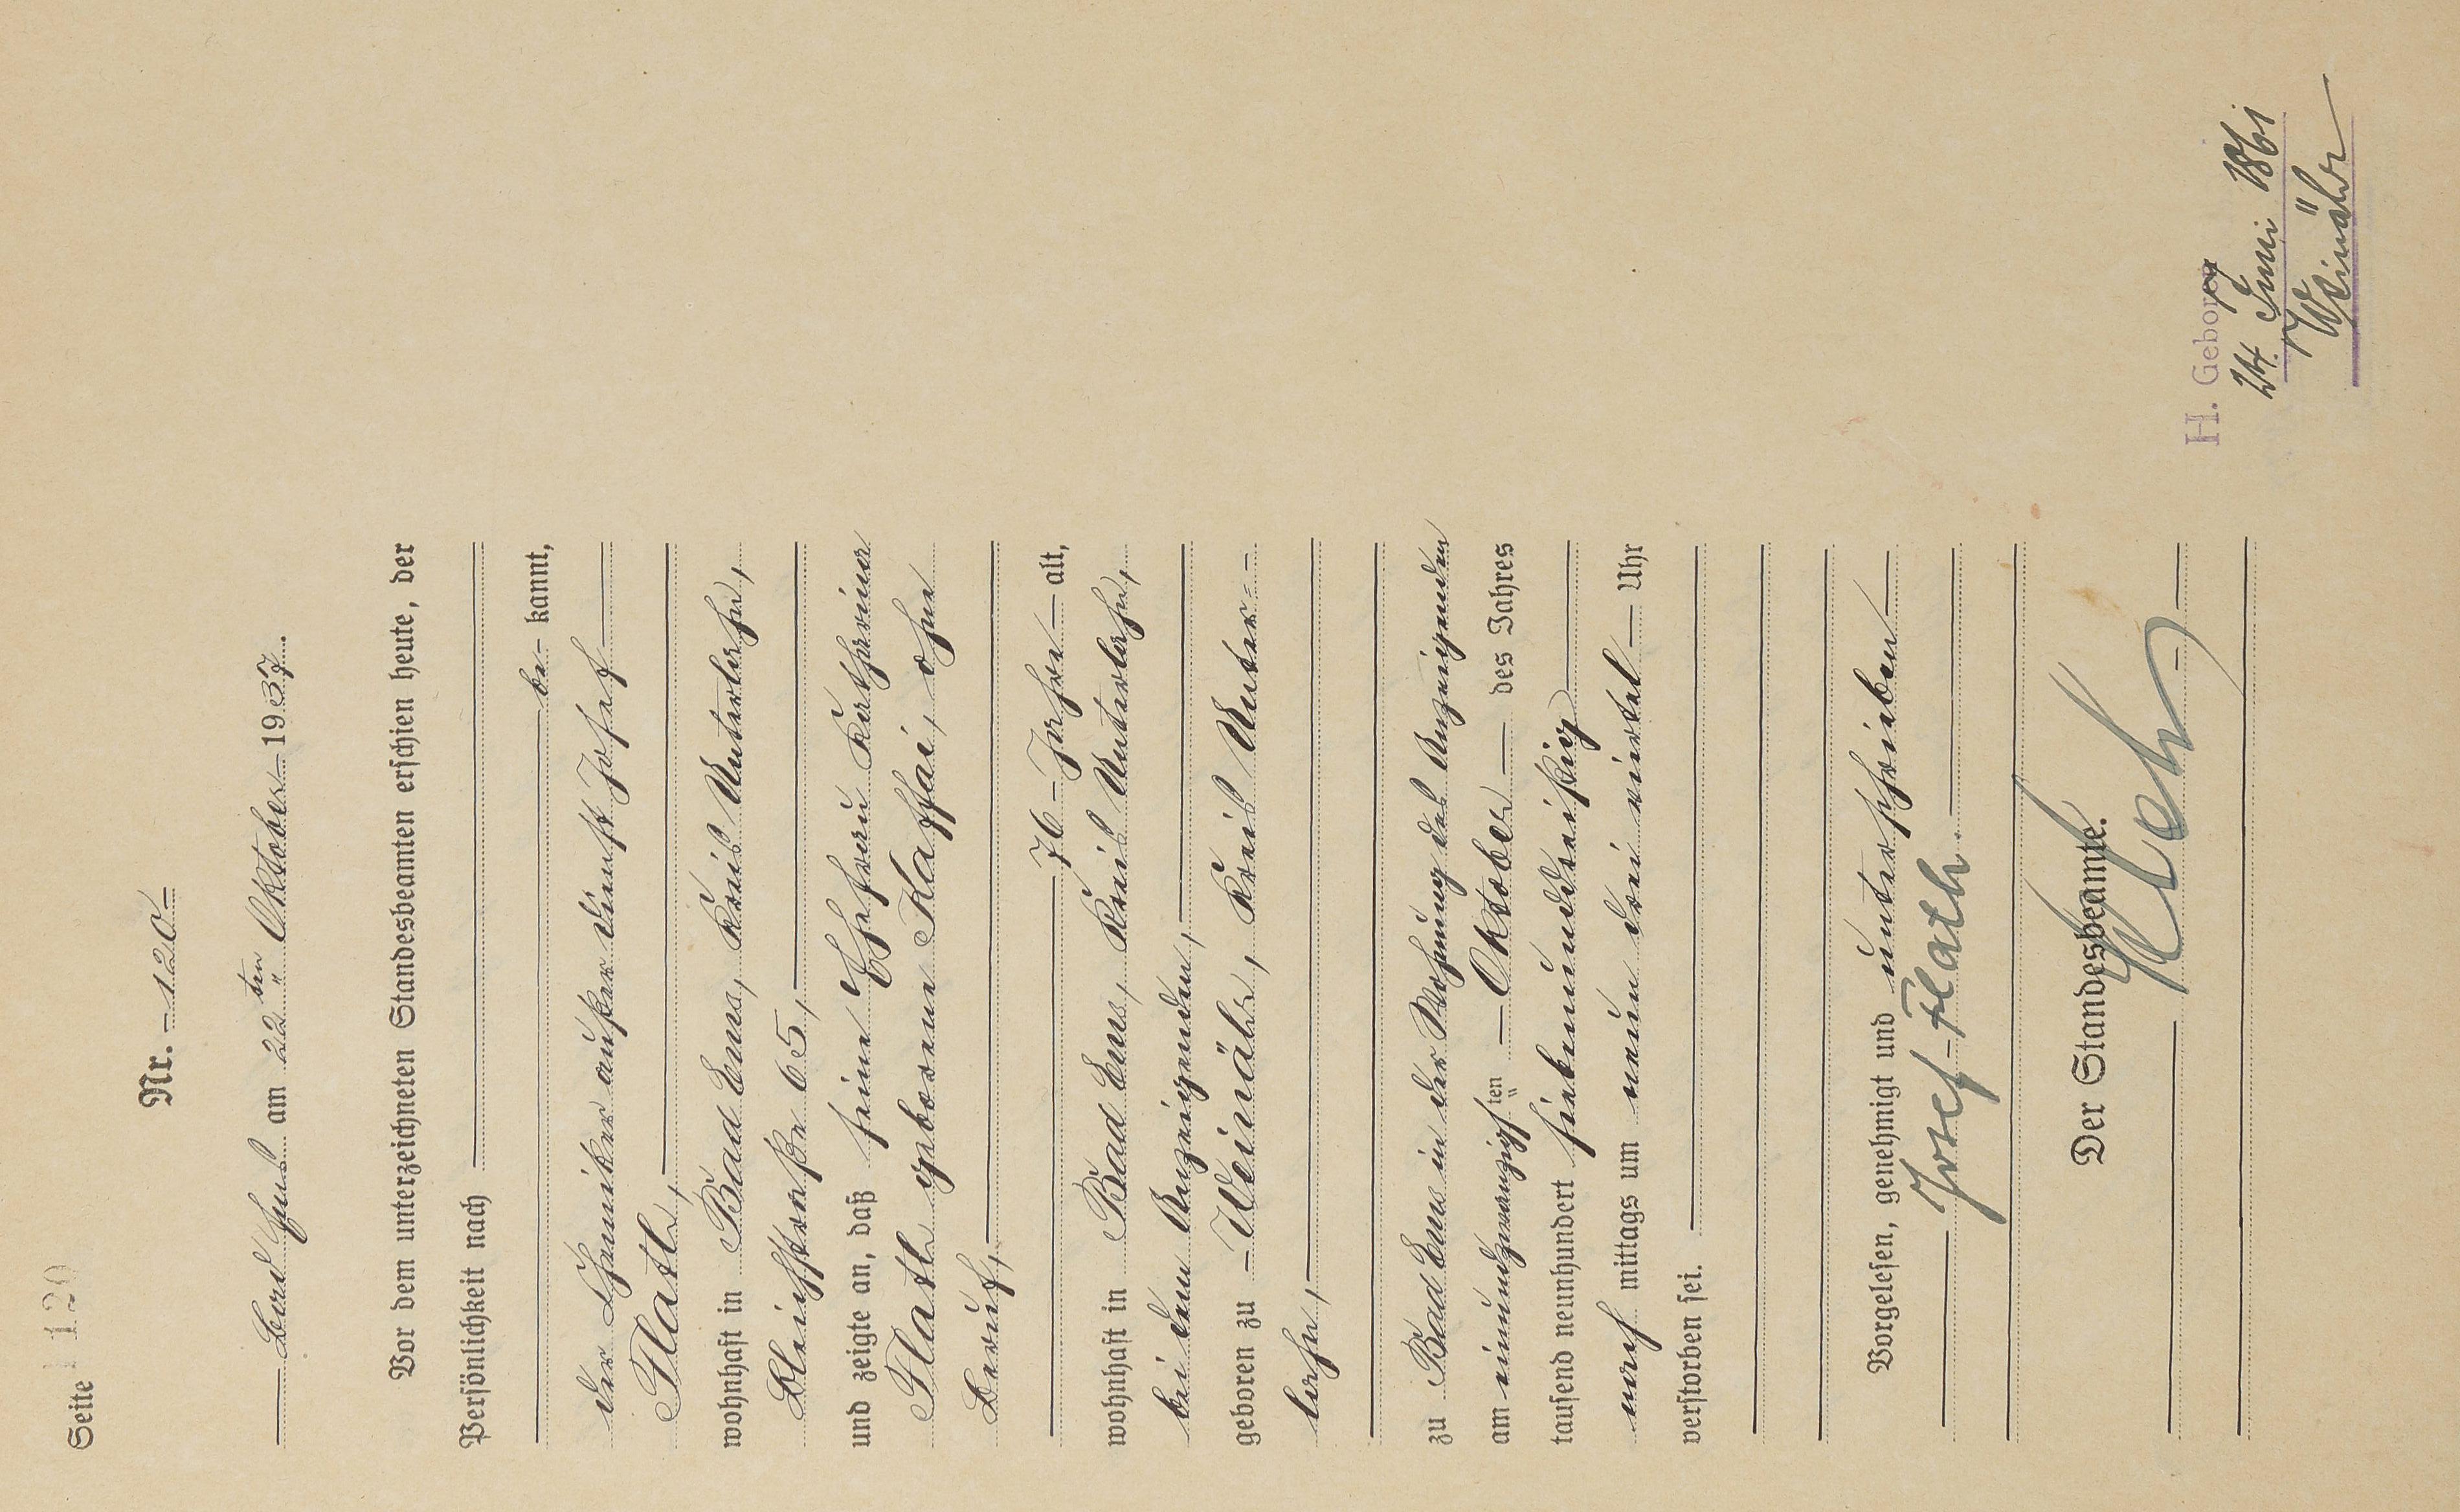 Seite 120
Nr. 120
Bad Ems am 22ten Oktober 1937.
Vor dem unterzeichneten Standesbeamten erschien heute, der
Persönlichkeit nach
be kannt,
der Chemiker außer Dienst Josef
Flath,
wohnhaft in Bad Ems, Kreis Unterlahn,
Bleichstraße 65,
und zeigte an, daß seine Ehefrau Katharina
Flath geborene Kaffai, ohne
Beruf,
76 Jahre alt,
wohnhaft in Bad Ems, Kreis Unterlahn,
bei dem Anzeigenden,
geboren zu Weinähr, Kreis Unter-
lahn,
zu Bad Ems in der Wohnung des Anzeigenden
am einundzwanzigsten Oktober des Jahres
tausend neunhundert siebenunddreißig
nach mittags um neun drei viertel Uhr
verstorben sei.
Vorgelesen, genehmigt und unterschrieben
Josef Flath.
Der Standesbeamte.
H. Geboren
24. Juni 1861
Weinähr